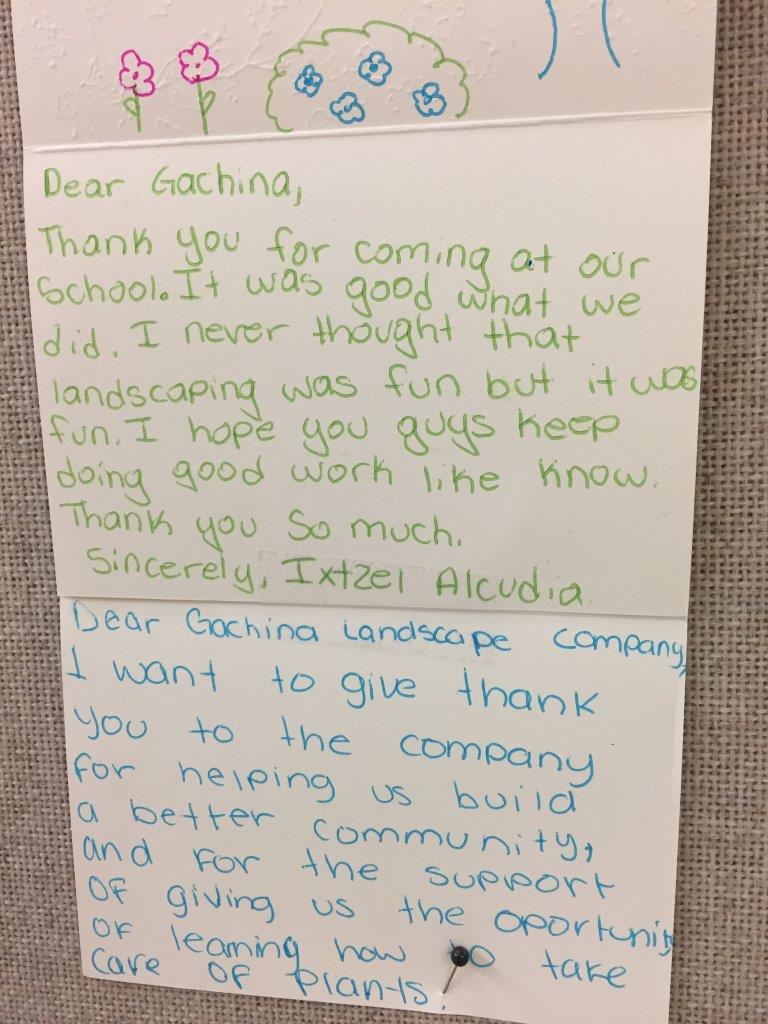 Dear Gachina,
Thank you for coming at our
School. It was good what we
did. I never thought that
landscaping was fun but it was
fun. I hope you guys keep
doing good work like know.
Thank you so much.
Sincerely, Ixtzel Alcudia
Dear Gachina Landscape company,
I want to give thank
you to the company
for helping us build
a better community,
and for the support
of giving us the oportunity
of learning how to take
care of plants.